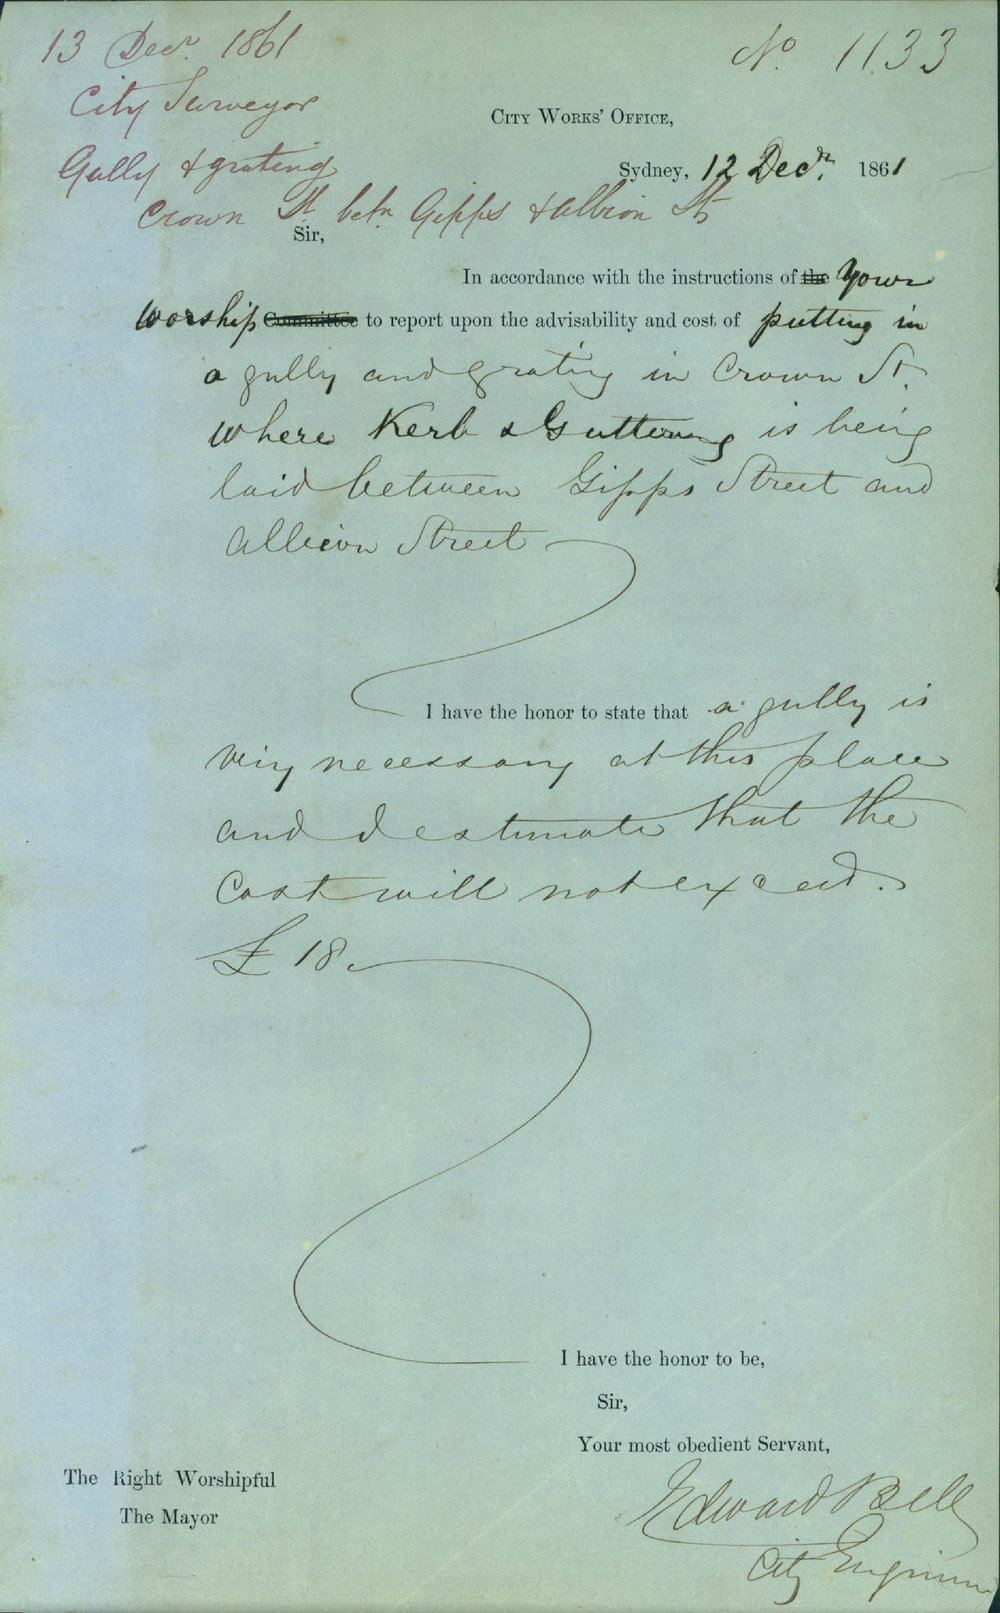 13 Decr. 1861
No. 1133
City Surveyor
City Works' Office,
Gully & grating
Sydney, 12 Decr. 1861
Crown St betn Gipps & Albion St
Sir,
In accordance with the instructions of the Your
Worship Committee to report upon the advisability and cost of putting in
a gully and grating in Crown St.
where Kerb & Guttering is being
laid between Gipps Street and
Albion Street
I have the honor to state that a gully is
very necessary at this place
and I estimate that the
Cost will not exceed.
£ 18.
I have the honor to be,
Sir,
Your most obedient Servant,
The Right Worshipful
The Mayor
Edward Bell
City Engineer